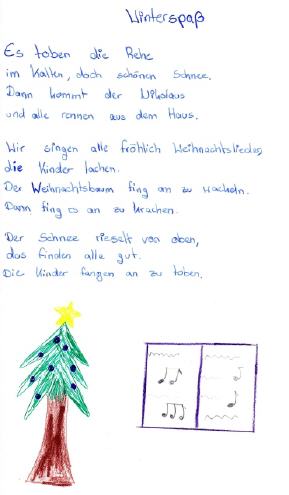 Winterspaß
Es toben die Rehe
im Kalten, doch schönen Schnee.
Dann kommt der Nikolaus
und alle rennen aus dem Haus.
Wir singen alle fröhlich Weihnachtslieder,
die Kinder lachen.
Der Weihnachtsbaum fing an zu wackeln.
Dann fing es an zu krachen.
Der Schnee rieselt von oben,
das finden alle gut.
Die Kinder fangen an zu toben.